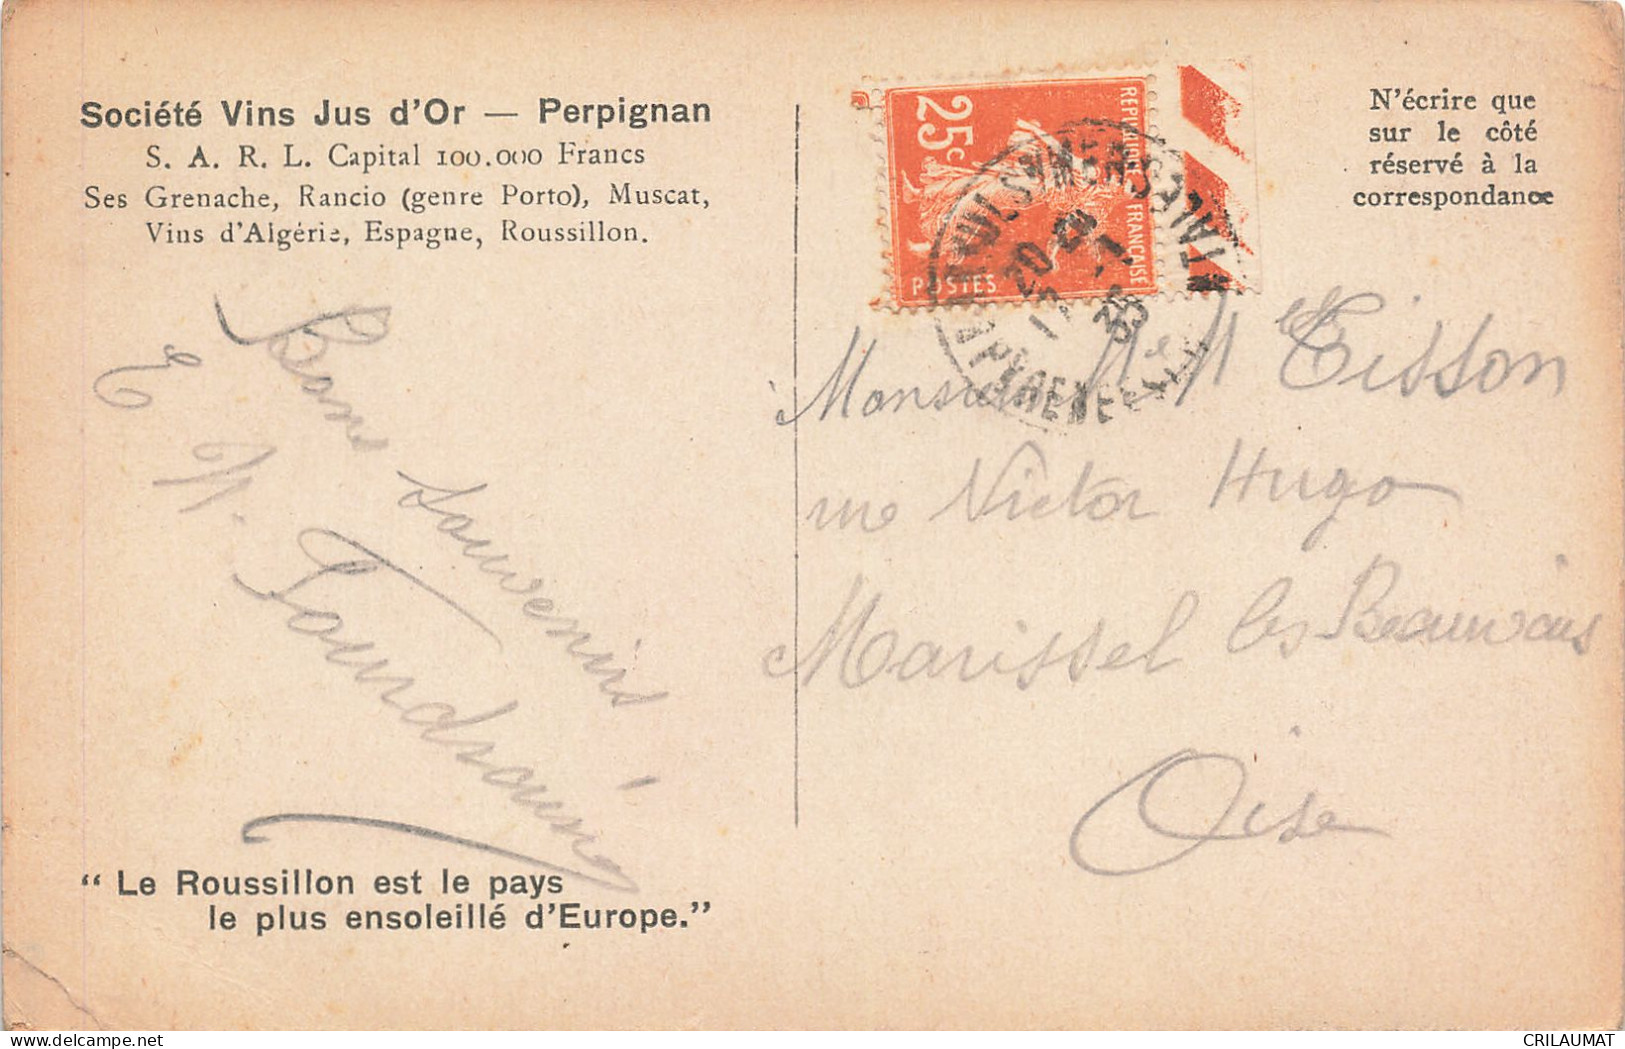 Société Vins Jus d'Or — Perpignan
S. A. R. L. Capital 100.000 Francs
Ses Grenache, Rancio (genre Porto), Muscat,
Vins d'Algérie, Espagne, Roussillon.
Bons souvenirs
E
" Le Roussillon est le pays
le plus ensoleillé d'Europe."
25c
REPUBLIQUE FRANÇAISE
POSTES
N'écrire que
sur le côté
réservé à la
correspondance
Monsieur Tisson
rue Victor Hugo
Marissel les Beauvais
Oise
CRILAUMAT